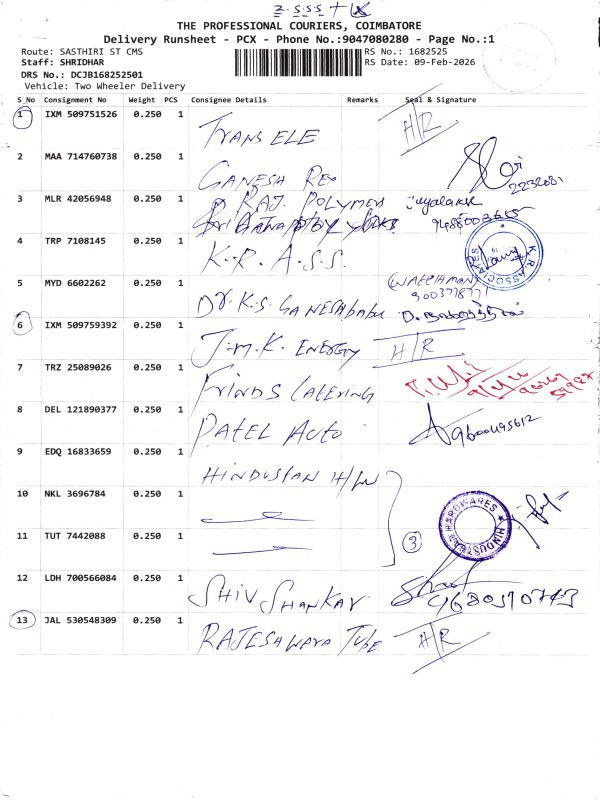 THE PROFESSIONAL COURIERS, COIMBATORE
Delivery Runsheet - PCX - Phone No.:9047080280 - Page No.:1
Route: SASTHIRI ST CMS
RS No.: 1682525
Staff: SHRIDHAR
RS Date: 09-Feb-2026
DRS No.: DCJB168252501
Vehicle: Two Wheeler Delivery
S_No Consignment No Weight PCS Consignee Details Remarks Seal & Signature
1 IXM 509751526 0.250 1 TRANS ELE H/R
2 MAA 714760738 0.250 1 GANESH Rex 2232081
3 MLR 42056948 0.250 1 RAJ. POLYMERS
4 TRP 7108145 0.250 1 K.R.A.S.S. K.R. ASSOCIATES
5 MYD 6602262 0.250 1 DR.K.S. GANESHbabu (WATCHMAN)
6 IXM 509759392 0.250 1 J.M.K. ENERGY H/R
7 TRZ 25089026 0.250 1 FRINDS CATERING
8 DEL 121890377 0.250 1 PATEL AUTO 9600495612
9 EDQ 16833659 0.250 1 HINDUSTAN H/W
10 NKL 3696784 0.250 1 HINDUSTAN HARDWARES
11 TUT 7442088 0.250 1 3
12 LDH 700566084 0.250 1 SHIV SHANKAR
13 JAL 530548309 0.250 1 RAJESHWARA TUBE H/R